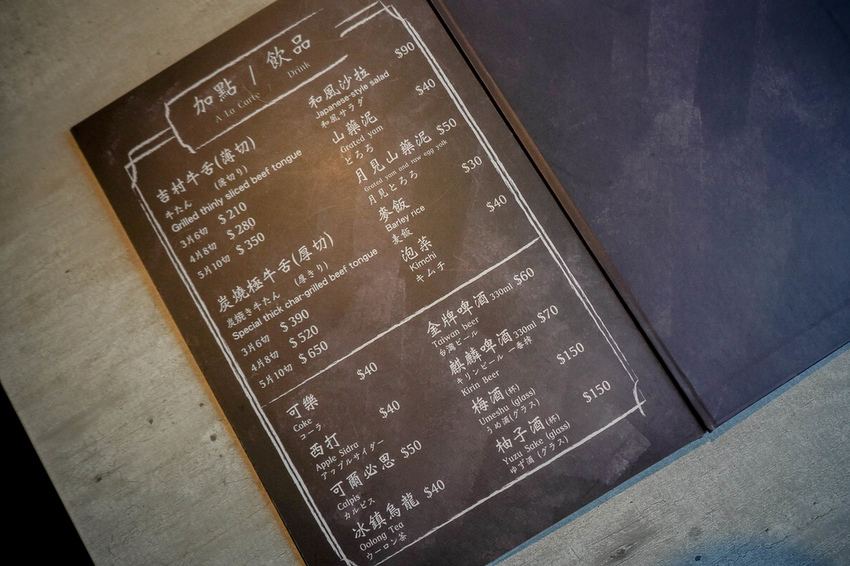 加點 / 飲品
A la Carte / Drink
吉村牛舌(薄切)
牛たん (薄切り)
Grilled thinly sliced beef tongue
3片6切 $210
4片8切 $280
5片10切 $350
炭燒極牛舌(厚切)
炭焼き牛たん (厚きり)
Special thick char-grilled beef tongue
3片6切 $390
4片8切 $520
5片10切 $650
和風沙拉 $90
Japanese-style salad
和風サラダ
山藥泥 $40
Grated yam
とろろ
月見山藥泥 $50
Grated yam and raw egg yolk
月見とろろ
麥飯 $30
Barley rice
麦飯
泡菜 $40
Kimchi
キムチ
可樂 $40
Coke
コーラ
西打 $40
Apple Sidra
アップルサイダー
可爾必思 $50
Calpis
カルピス
冰鎮烏龍 $40
Oolong Tea
ウーロン茶
金牌啤酒 330ml $60
Taiwan beer
台湾ビール
麒麟啤酒 330ml $70
キリンビール 一番搾
Kirin Beer
梅酒(杯) $150
Umeshu (glass)
うめ酒(グラス)
柚子酒(杯) $150
Yuzu Sake (glass)
ゆず酒 (グラス)